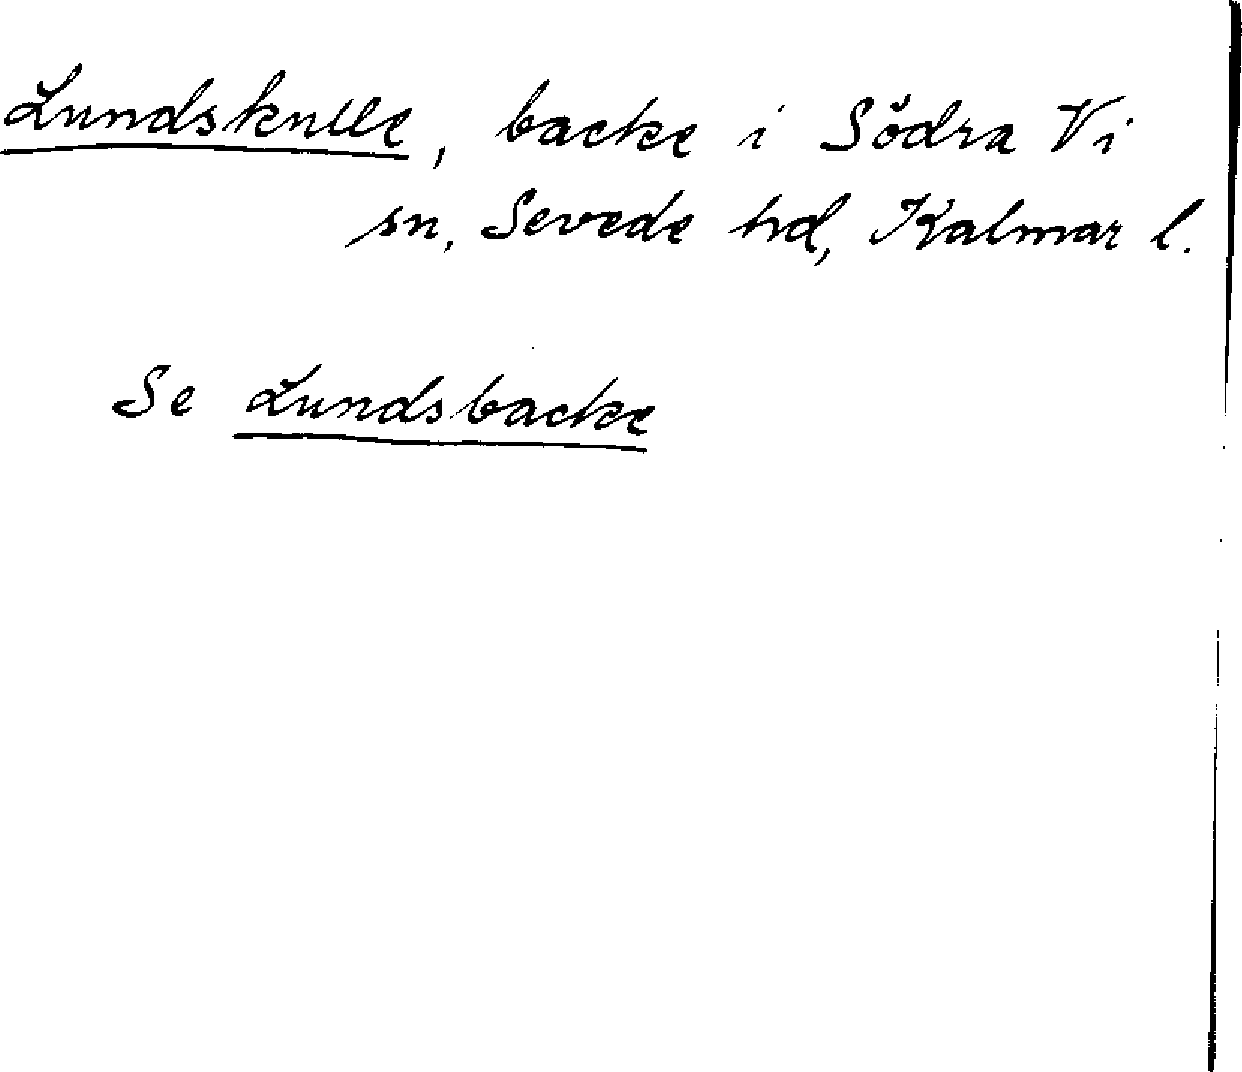 Lundskulle, backe i Södra Vi
sn, Sevede hd, Kalmar l.
Se Lundsbacke